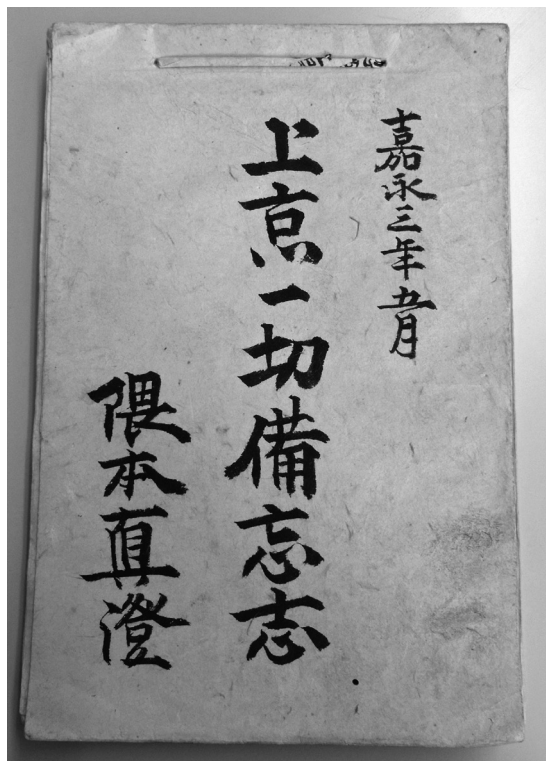 嘉永三年五月
上京一切備忘志
隈本真澄